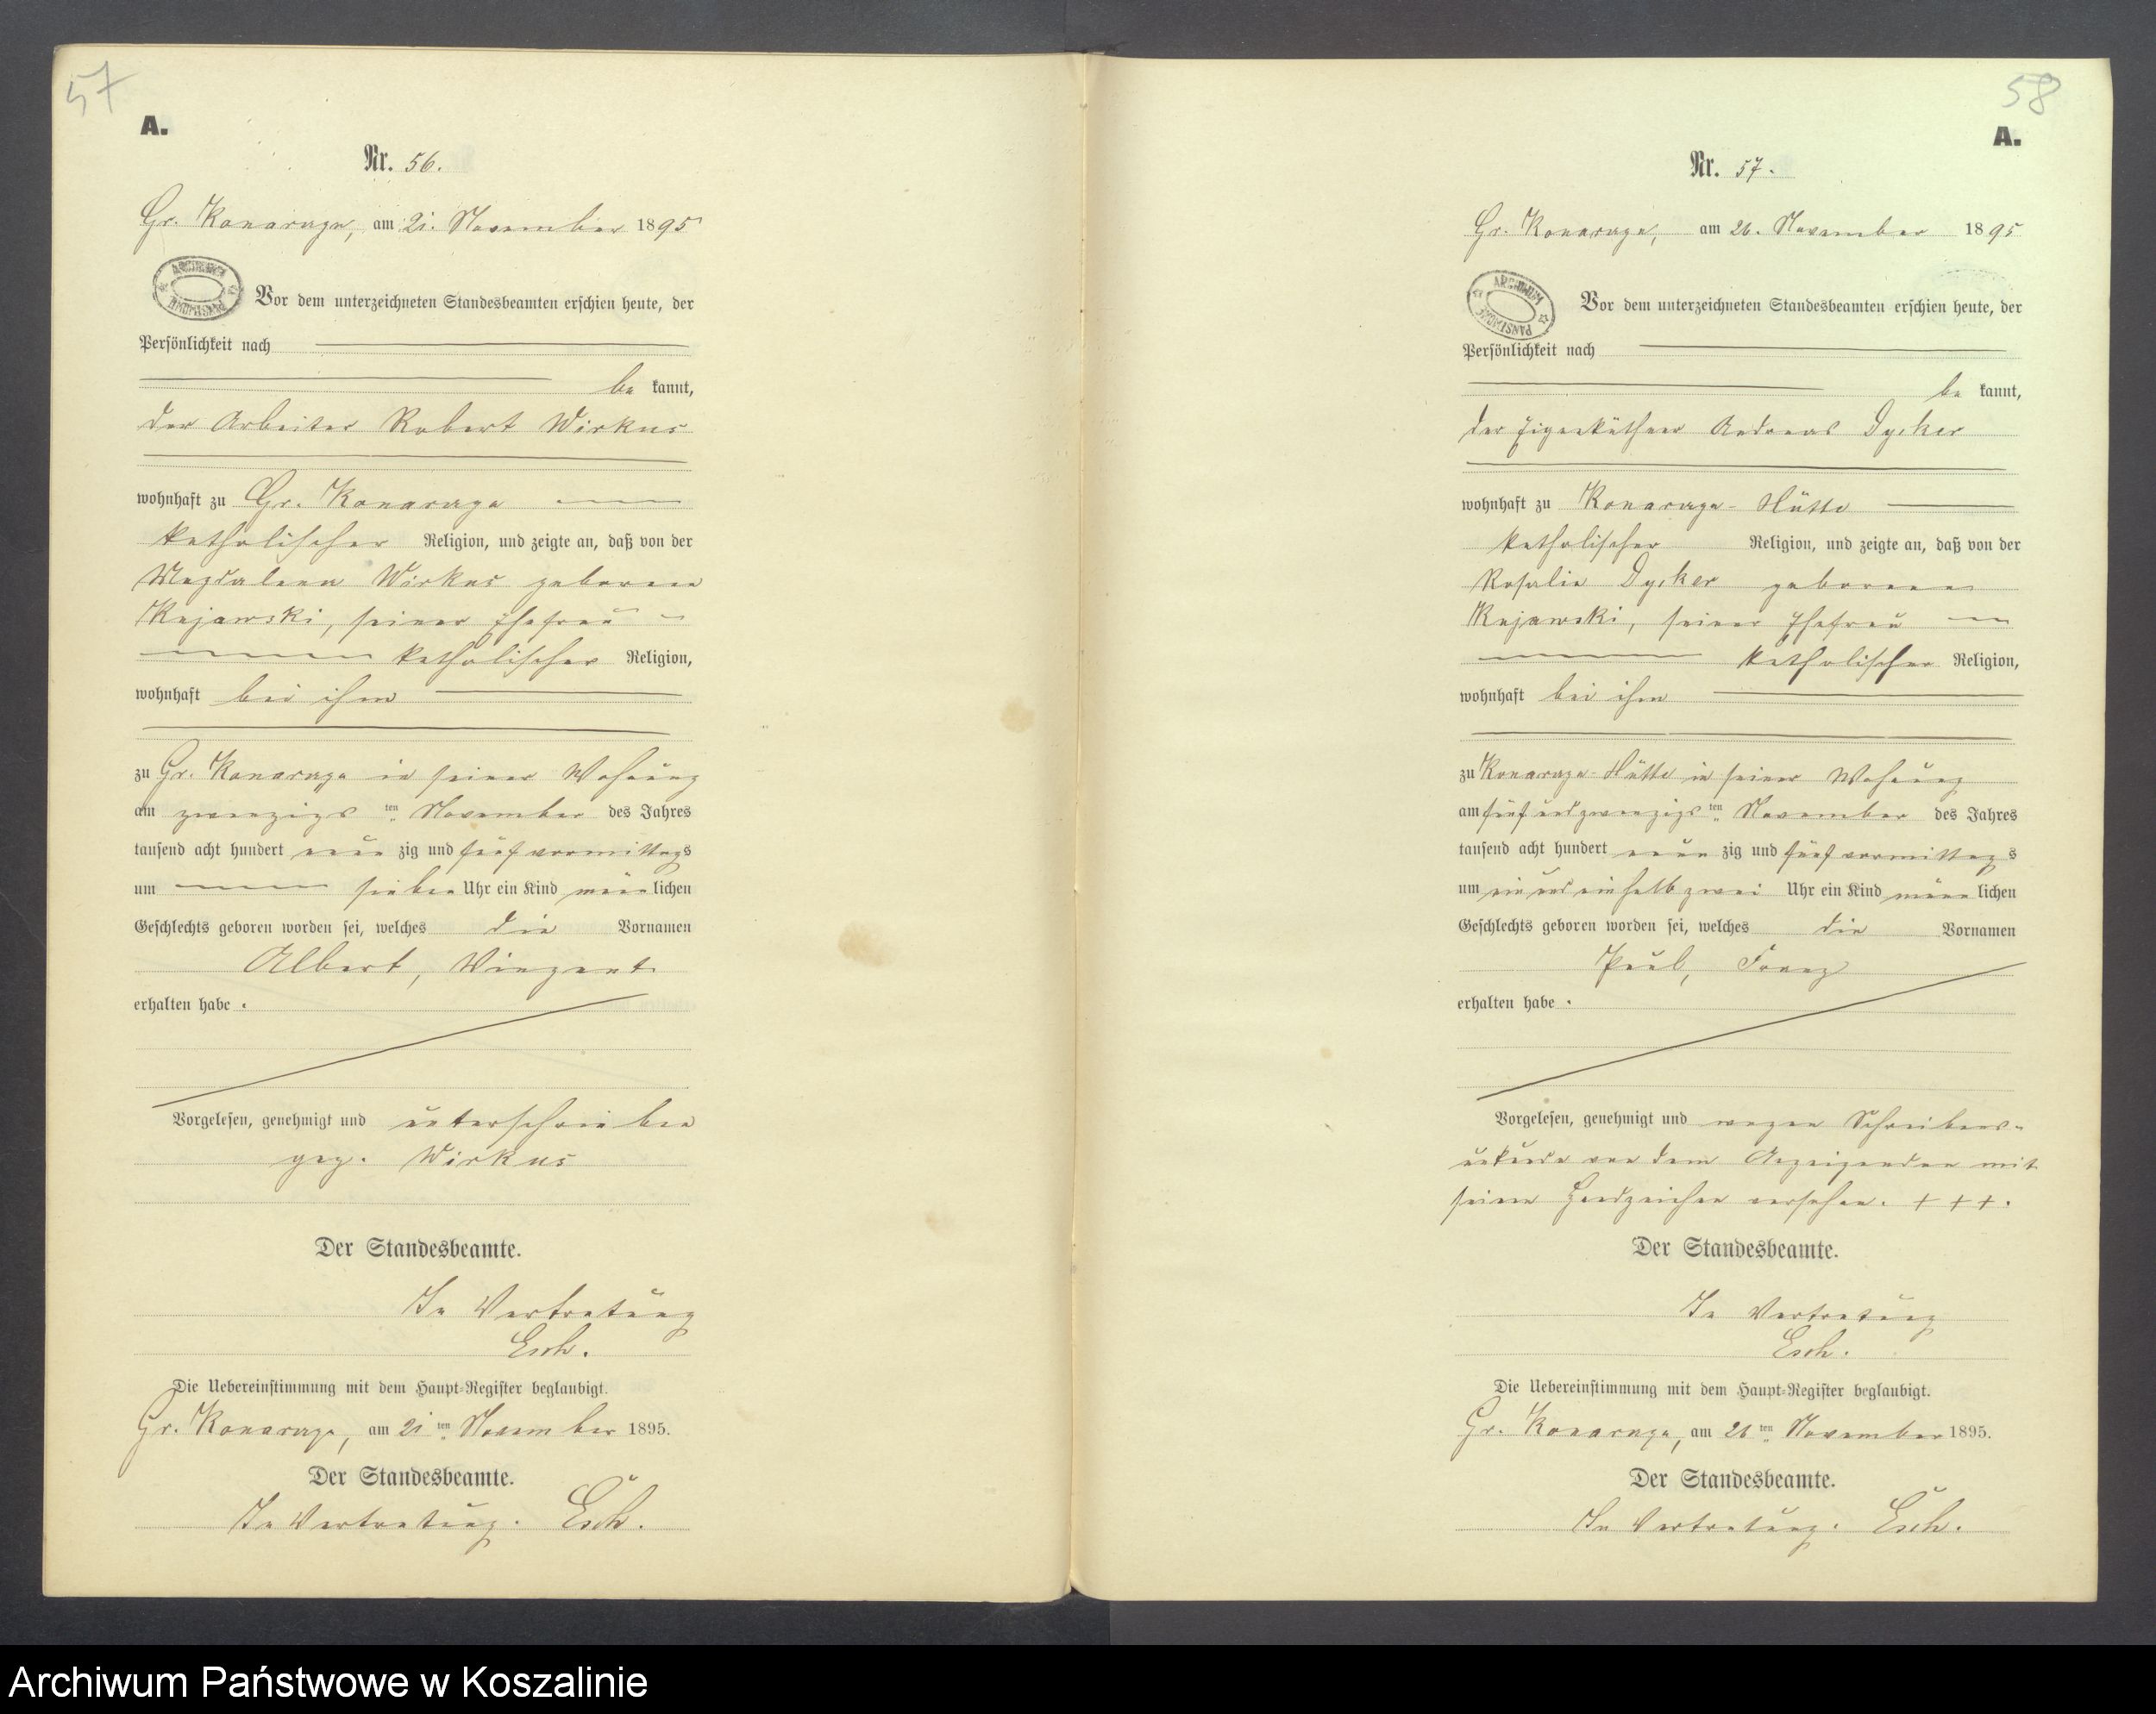 57
A.
Nr. 56.
Gr. Konarczyn, am 21. November 1895
ARCHIWUM PAŃSTWOWE
Vor dem unterzeichneten Standesbeamten erschien heute, der
Persönlichkeit nach
be kannt,
der Arbeiter Robert Wirkus
wohnhaft zu Gr. Konarczyn
katholischer Religion, und zeigte an, daß von der
Magdalena Wirkus geborenen
Kujawski, seiner Ehefrau
katholischer Religion,
wohnhaft bei ihm
zu Gr. Konarczyn in seiner Wohnung
am zwanzigs ten November des Jahres
tausend acht hundert neun zig und fünf vormittags
um sieben Uhr ein Kind männ lichen
Geschlechts geboren worden sei, welches die Vornamen
Albert, Vinzent
erhalten habe.
Vorgelesen, genehmigt und unterschrieben
gez. Wirkus
Der Standesbeamte.
In Vertretung
Esch.
Die Uebereinstimmung mit dem Haupt-Register beglaubigt.
Gr. Konarczyn, am 21 ten November 1895.
Der Standesbeamte.
In Vertretung. Esch.
58
A.
Nr. 57.
Gr. Konarczyn, am 26. November 1895
ARCHIWUM PAŃSTWOWE
Vor dem unterzeichneten Standesbeamten erschien heute, der
Persönlichkeit nach
be kannt,
der Eigenkäthner Andreas Dycker
wohnhaft zu Konarczyn-Hütte
katholischer Religion, und zeigte an, daß von der
Rosalie Dycker geborenen
Kujawski, seiner Ehefrau
katholischer Religion,
wohnhaft bei ihm
zu Konarczyn-Hütte in seiner Wohnung
am fünfundzwanzigs ten November des Jahres
tausend acht hundert neun zig und fünf vormittags
um ein und einhalb zwei Uhr ein Kind männ lichen
Geschlechts geboren worden sei, welches die Vornamen
Paul, Franz
erhalten habe.
Vorgelesen, genehmigt und wegen Schreibens-
unkunde von dem Anzeigenden mit
seinem Handzeichen versehen. + + +.
Der Standesbeamte.
In Vertretung
Esch.
Die Uebereinstimmung mit dem Haupt-Register beglaubigt.
Gr. Konarczyn, am 26 ten November 1895.
Der Standesbeamte.
In Vertretung. Esch.
Archiwum Państwowe w Koszalinie